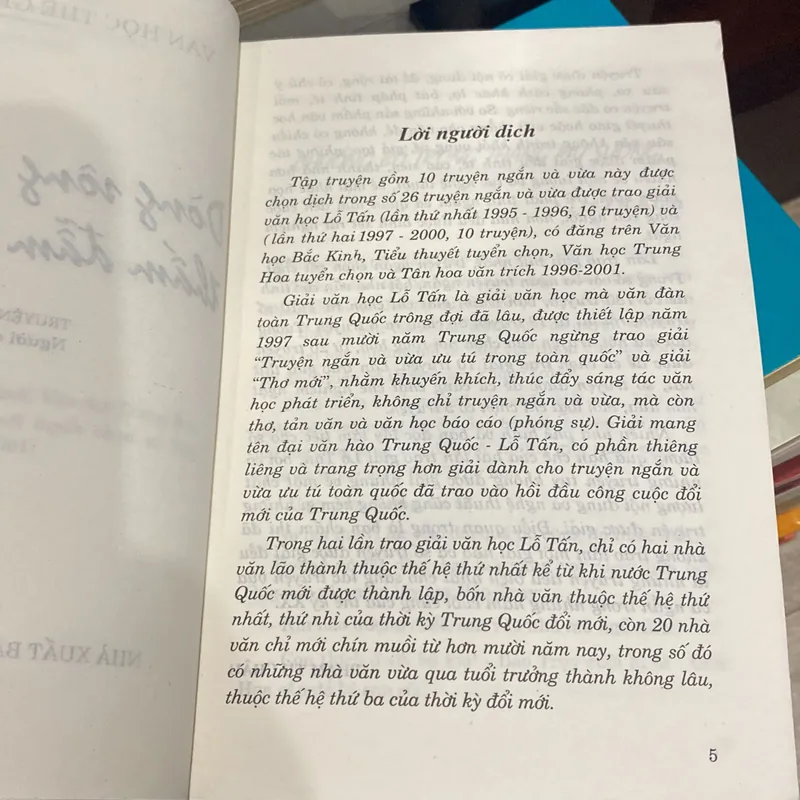 Lời người dịch
Tập truyện gồm 10 truyện ngắn và vừa này được
chọn dịch trong số 26 truyện ngắn và vừa được trao giải
văn học Lỗ Tấn (lần thứ nhất 1995 - 1996, 16 truyện) và
(lần thứ hai 1997 - 2000, 10 truyện), có đăng trên Văn
học Bắc Kinh, Tiểu thuyết tuyển chọn, Văn học Trung
Hoa tuyển chọn và Tân hoa văn trích 1996-2001.
Giải văn học Lỗ Tấn là giải văn học mà văn đàn
toàn Trung Quốc trông đợi đã lâu, được thiết lập năm
1997 sau mười năm Trung Quốc ngừng trao giải
“Truyện ngắn và vừa ưu tú trong toàn quốc” và giải
“Thơ mới”, nhằm khuyến khích, thúc đẩy sáng tác văn
học phát triển, không chỉ truyện ngắn và vừa, mà còn
thơ, tản văn và văn học báo cáo (phóng sự). Giải mang
tên đại văn hào Trung Quốc - Lỗ Tấn, có phần thiêng
liêng và trang trọng hơn giải dành cho truyện ngắn và
vừa ưu tú toàn quốc đã trao vào hồi đầu công cuộc đổi
mới của Trung Quốc.
Trong hai lần trao giải văn học Lỗ Tấn, chỉ có hai nhà
văn lão thành thuộc thế hệ thứ nhất kể từ khi nước Trung
Quốc mới được thành lập, bốn nhà văn thuộc thế hệ thứ
nhất, thứ nhì của thời kỳ Trung Quốc đổi mới, còn 20 nhà
văn chỉ mới chín muồi từ hơn mười năm nay, trong số đó
có những nhà văn vừa qua tuổi trưởng thành không lâu,
thuộc thế hệ thứ ba của thời kỳ đổi mới.
5